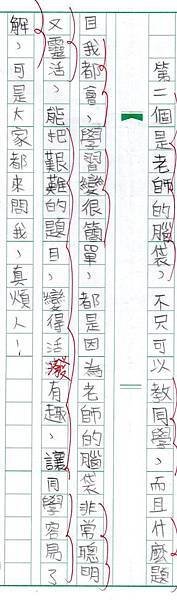 第二個是老師的腦袋，不只可以教同學，而且什麼題
目我都會，學習變很簡單，都是因為老師的腦袋非常聰明
又靈活，能把艱難的題目，變得活潑有趣，讓同學容易了
解，可是大家都來問我，真煩人！